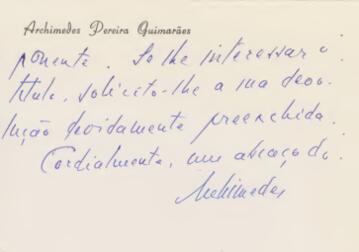 Archimedes Pereira Guimarães
ponente. Se lhe interessar o
título, solicito-lhe a sua devo-
lução devidamente preenchida.
Cordialmente, um abraço do
Archimedes